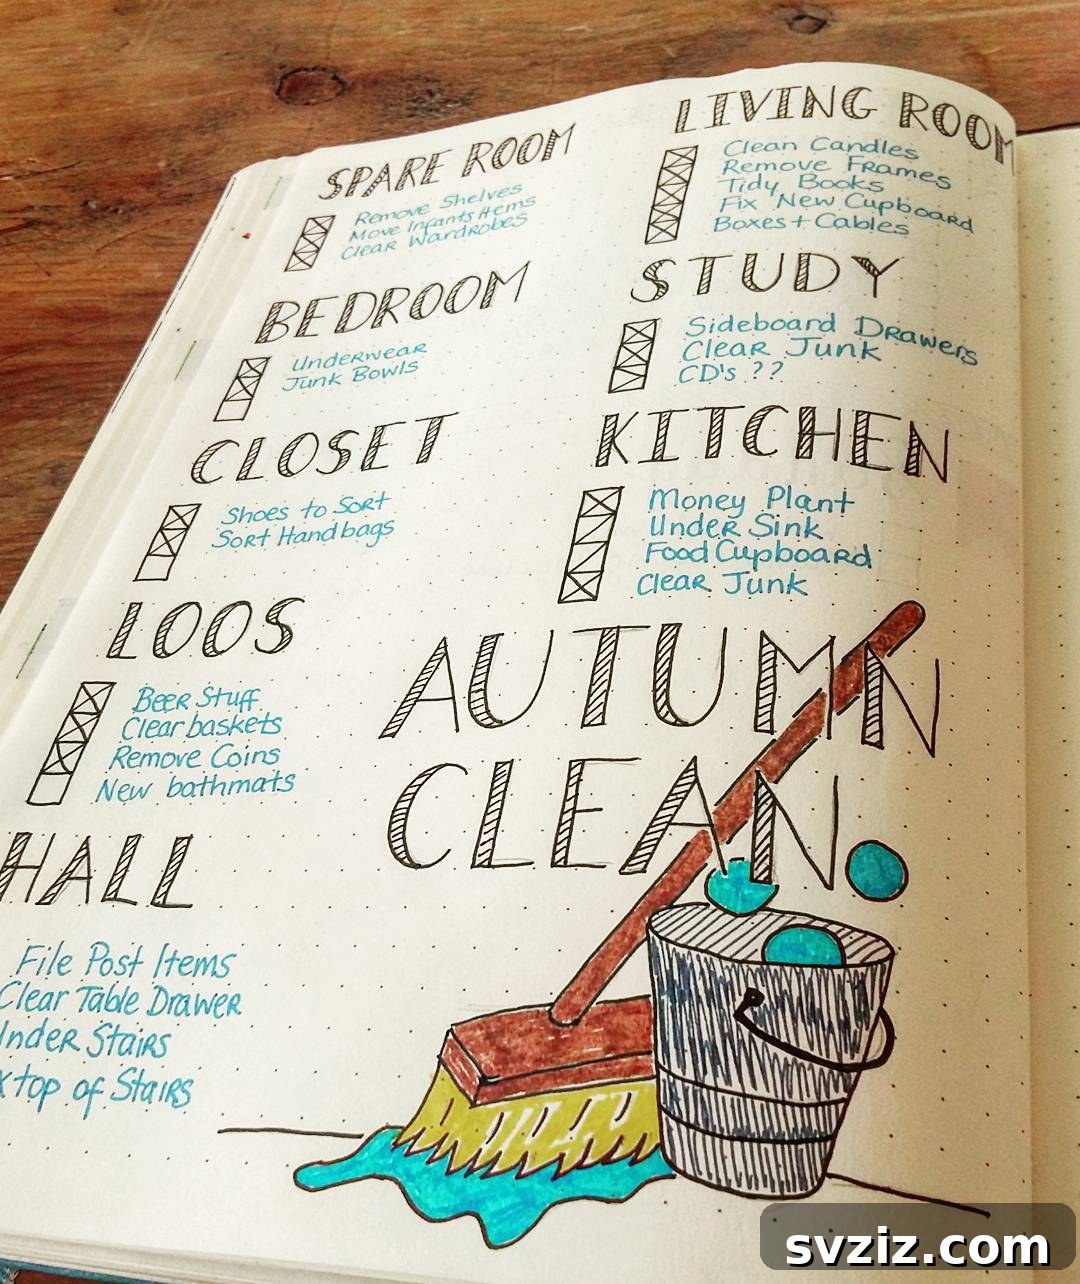 SPARE ROOM
Remove Shelves
Move Infants Items
Clear Wardrobes
BEDROOM
Underwear
Junk Bowls
CLOSET
Shoes to Sort
Sort Handbags
LOOS
Beer Stuff
Clear baskets
Remove Coins
New bathmats
HALL
File Post Items
Clear Table Drawer
Under Stairs
top of Stairs
LIVING ROOM
Clean Candles
Remove Frames
Tidy Books
Fix New Cupboard
Boxes + Cables
STUDY
Sideboard Drawers
Clear Junk
CD's ??
KITCHEN
Money Plant
Under Sink
Food Cupboard
Clear Junk
AUTUMN
CLEAN.
svziz.com